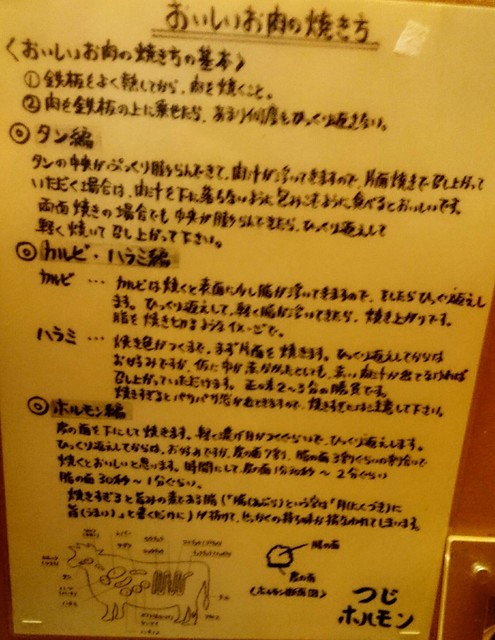 おいしいお肉の焼き方
〈おいしいお肉の焼き方の基本〉
①鉄板をよく熱してから、肉を焼くこと。
②肉を鉄板の上に乗せたら、あまり何度もひっくり返さない。
◎タン編
タンの中央がぷっくり膨らんできて、肉汁が浮いてきますので、片面焼きで召し上がって
いただく場合は、肉汁を下に落さないように包みこむように食べるとおいしいです。
両面焼きの場合でも中央が膨らんできたら、ひっくり返えして
軽く焼いて召し上がって下さい。
◎カルビ・ハラミ編
カルビ … カルビは焼くと表面に少し脂が浮いてきますので、そしたらひっくり返えし
ます。ひっくり返えして、軽く脂が浮いてきたら、焼き上がりです。
脂を焼きとめるようなイメージで。
ハラミ … 焼き色がつくまで、まず片面を焼きます。ひっくり返えしてからは
お好みですが、仮に中が赤かったとしても、赤い肉汁が出てなければ
召し上がっていただけます。正味2〜3分の勝負です。
焼きすぎるとパサパサ感が出てきますので、焼きすぎには注意して下さい。
◎ホルモン編
皮の面を下にして焼きます。軽く焦げ目がつくぐらいで、ひっくり返えします。
ひっくり返えしてからは、お好みですが、皮の面7割、脂の面3割ぐらいの割合いで
焼くとおいしいと思います。時間にして、皮の面1分30秒〜2分ぐらい
脂の面30秒〜1分ぐらい。
焼きすぎると旨みの素である脂(「脂(あぶら)という字は「月(にくづき)に
旨(うまい)」と書くだけに)が抜けて、せっかくの持ち味が損なわれてしまいます。
脂の面
皮の面
(ホルモン断面図)
つじ
ホルモン